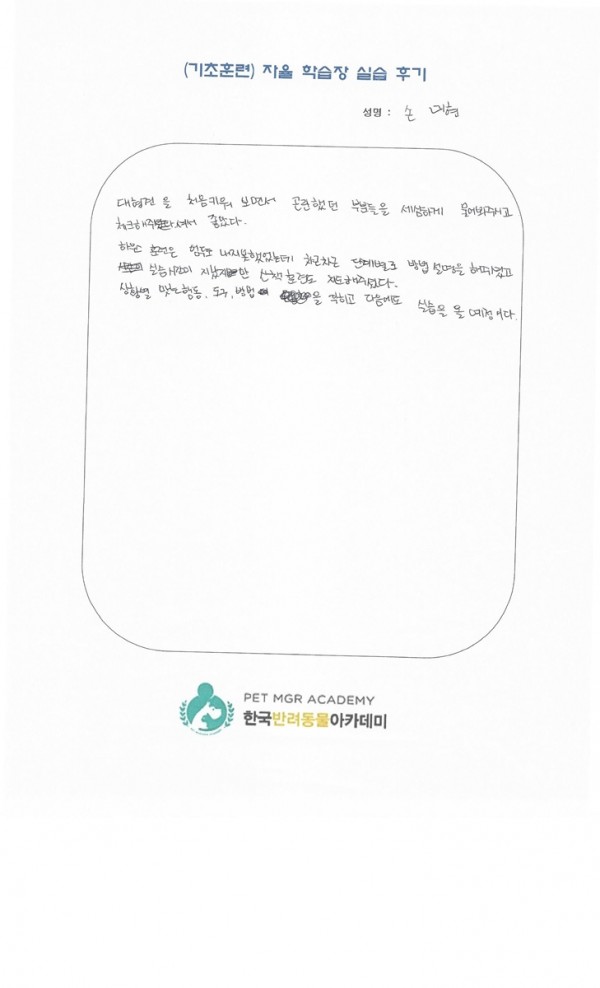 (기초훈련) 자율 학습장 실습 후기
성명 : 손
대형견을 처음키워 보면서 곤란했던 부분들을 세심하게 물어봐주시고
체크해주셔서 좋았다.
하우스 훈련은 엄두도 내지못했었는데 차근차근 단계별로 방법 설명을 해주셨고
실습시간이 지났지만 산책훈련도 지도해주셨다.
상황별 맞는행동, 도구, 방법을 익히고 다음에도 실습을 올 예정이다.
PET MGR ACADEMY
한국반려동물아카데미